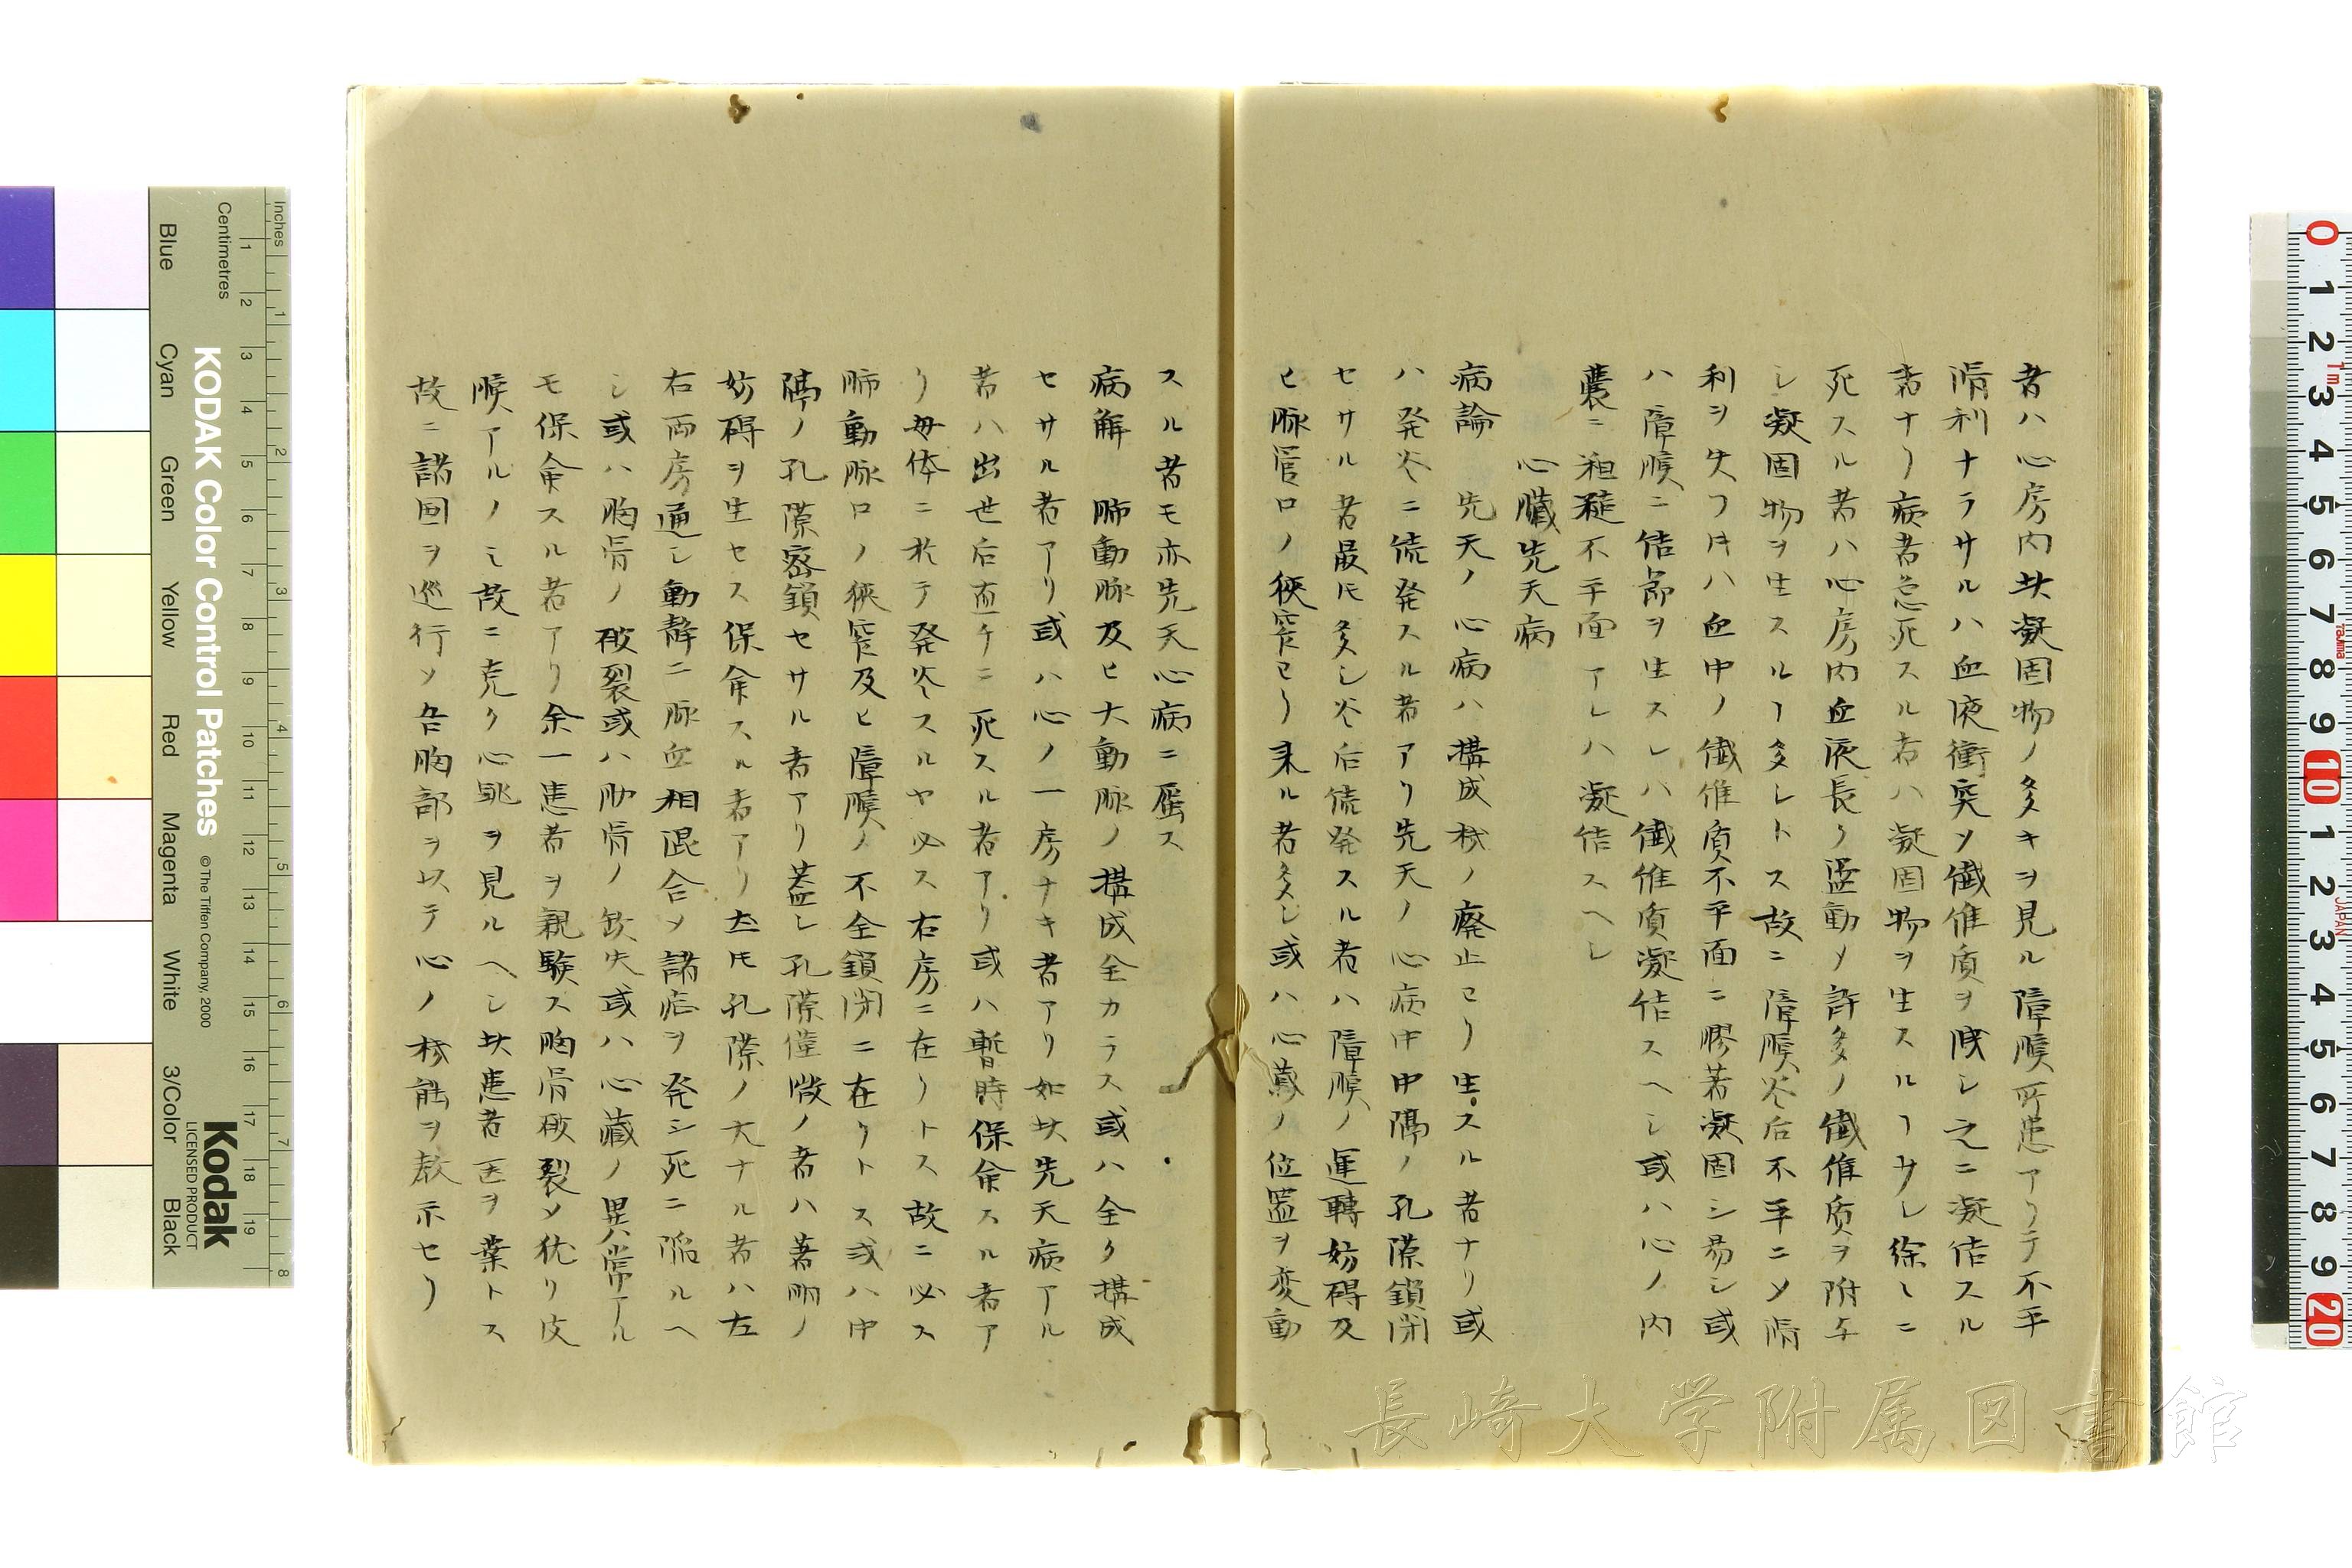 者ハ心房内此凝固物ノ多キヲ見ル障膜所患アリテ不平
滑利ナラサルハ血液衝突ソ繊維質ヲ賎シ之ニ凝結スル
者ナリ病者急死スル者ハ凝固物ヲ生スルヿ少レ徐々ニ
死スル者ハ心房内血液長ク盪動ソ許多ノ繊維质ヲ附与
シ凝固物ヲ生スルヿ多シトス故ニ障膜炎后不平ニソ滑
利ヲ失フ片ハ血中ノ繊維质不平面ニ膠着凝固シ易シ或
ハ障膜ニ結節ヲ生スレハ繊維质凝結スヘシ或ハ心ノ内
嚢ニ粗糙不平面アレハ凝結スヘシ
心臓先天病
病論 先天ノ心病ハ構成機ノ廃止ヨリ生スル者ナリ或
ハ発炎ニ続発スル者アリ先天ノ心病中中隔ノ孔隙鎖閉
セサル者最モ多シ炎后続発スル者ハ障膜ノ運轉妨碍及
ヒ脉管口ノ狹窄ヨリ来ル者多シ或ハ心蔵ノ位置ヲ変動
スル者モ亦先天心病ニ属ス
病解 肺動脉及ヒ大動脉ノ構成全カラス或ハ全ク構成
セサル者アリ或ハ心ノ一房ナキ者アリ如此先天病アル
者ハ出世后直チニ死スル者アリ或ハ暫時保命スル者ア
リ母体ニ於テ発炎スルヤ必ス右房ニ在リトス故ニ必ス
肺動脉口ノ狹窄及ヒ障膜ノ不全鎖閉ニ在リトス或ハ中
隔ノ孔隙密鎖セサル者アリ蓋シ孔隙僅微ノ者ハ著明ノ
妨碍ヲ生セス保命スル者アリ𪜈孔隙ノ大ナル者ハ左
右両房通シ動静ニ脉血相混合ソ諸症ヲ発シ死ニ陥ルヘ
シ或ハ胸骨ノ破裂或ハ肋骨ノ欽失或ハ心蔵ノ異常アル
モ保命スル者アリ余一患者ヲ親験ス胸骨破裂ソ犹リ皮
膜アルノミ故ニ克ク心跳ヲ見ルヘシ此患者医ヲ業トス
故ニ諸国ヲ巡行ソ各胸部ヲ以テ心ノ機能ヲ教示セリ
KODAK Color Control Patches
© The Tiffen Company, 2000
Kodak
LICENSED PRODUCT
Inches
Centimetres
Blue
Cyan
Green
Yellow
Red
Magenta
White
3/Color
Black
長崎大学附属図書館